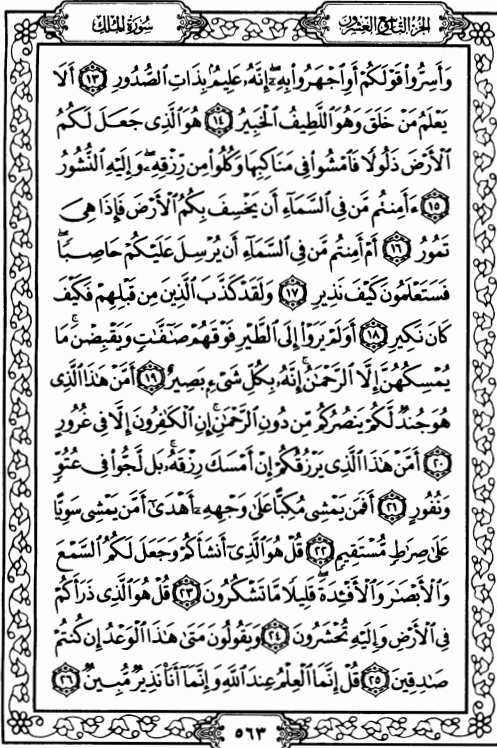 سُورَةُ المُلْكِ
الجُزْءُ التَّاسِعُ وَالعِشْرُونَ
وَأَسِرُّوا۟ قَوْلَكُمْ أَوِ ٱجْهَرُوا۟ بِهِۦٓ إِنَّهُۥ عَلِيمٌۢ بِذَاتِ ٱلصُّدُورِ ١٣ أَلَا
يَعْلَمُ مَنْ خَلَقَ وَهُوَ ٱللَّطِيفُ ٱلْخَبِيرُ ١٤ هُوَ ٱلَّذِى جَعَلَ لَكُمُ
ٱلْأَرْضَ ذَلُولًا فَٱمْشُوا۟ فِى مَنَاكِبِهَا وَكُلُوا۟ مِن رِّزْقِهِۦ ۖ وَإِلَيْهِ ٱلنُّشُورُ
١٥ ءَأَمِنتُم مَّن فِى ٱلسَّمَآءِ أَن يَخْسِفَ بِكُمُ ٱلْأَرْضَ فَإِذَا هِىَ
تَمُورُ ١٦ أَمْ أَمِنتُم مَّن فِى ٱلسَّمَآءِ أَن يُرْسِلَ عَلَيْكُمْ حَاصِبًا ۖ
فَسَتَعْلَمُونَ كَيْفَ نَذِيرِ ١٧ وَلَقَدْ كَذَّبَ ٱلَّذِينَ مِن قَبْلِهِمْ فَكَيْفَ
كَانَ نَكِيرِ ١٨ أَوَلَمْ يَرَوْا۟ إِلَى ٱلطَّيْرِ فَوْقَهُمْ صَٰٓفَّٰتٍ وَيَقْبِضْنَ ۚ مَا
يُمْسِكُهُنَّ إِلَّا ٱلرَّحْمَٰنُ ۚ إِنَّهُۥ بِكُلِّ شَىْءٍۭ بَصِيرٌ ١٩ أَمَّنْ هَٰذَا ٱلَّذِى
هُوَ جُندٌ لَّكُمْ يَنصُرُكُم مِّن دُونِ ٱلرَّحْمَٰنِ ۚ إِنِ ٱلْكَٰفِرُونَ إِلَّا فِى غُرُورٍ
٢٠ أَمَّنْ هَٰذَا ٱلَّذِى يَرْزُقُكُمْ إِنْ أَمْسَكَ رِزْقَهُۥ ۚ بَل لَّجُّوا۟ فِى عُتُوٍّ
وَنُفُورٍ ٢١ أَفَمَن يَمْشِى مُكِبًّا عَلَىٰ وَجْهِهِۦٓ أَهْدَىٰٓ أَمَّن يَمْشِى سَوِيًّا
عَلَىٰ صِرَٰطٍ مُّسْتَقِيمٍ ٢٢ قُلْ هُوَ ٱلَّذِىٓ أَنشَأَكُمْ وَجَعَلَ لَكُمُ ٱلسَّمْعَ
وَٱلْأَبْصَٰرَ وَٱلْأَفْـِٔدَةَ ۖ قَلِيلًا مَّا تَشْكُرُونَ ٢٣ قُلْ هُوَ ٱلَّذِى ذَرَأَكُمْ
فِى ٱلْأَرْضِ وَإِلَيْهِ تُحْشَرُونَ ٢٤ وَيَقُولُونَ مَتَىٰ هَٰذَا ٱلْوَعْدُ إِن كُنتُمْ
صَٰدِقِينَ ٢٥ قُلْ إِنَّمَا ٱلْعِلْمُ عِندَ ٱللَّهِ وَإِنَّمَآ أَنَا۠ نَذِيرٌ مُّبِينٌ ٢٦
٥٦٣